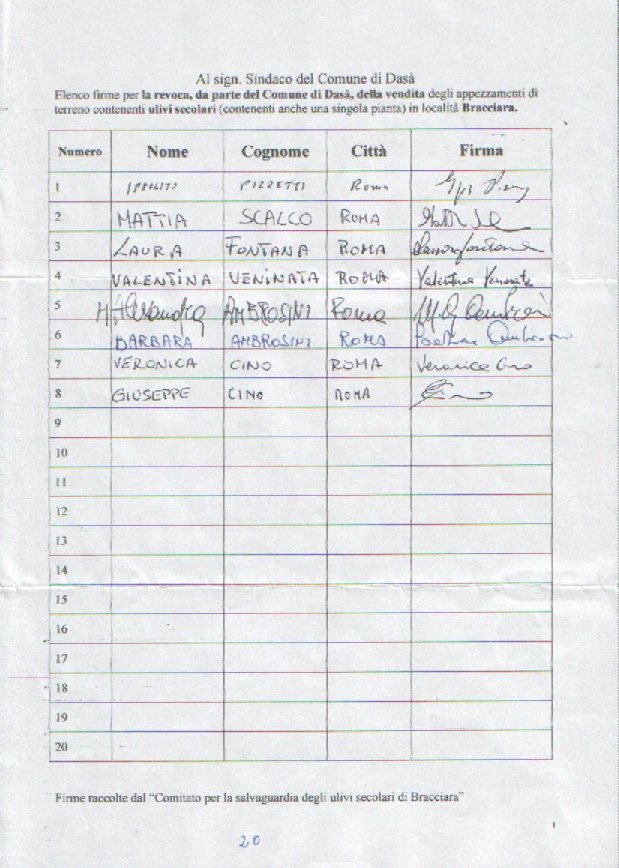 Al sign. Sindaco del Comune di Dasà
Elenco firme per la revoca, da parte del Comune di Dasà, della vendita degli appezzamenti di
terreno contenenti ulivi secolari (contenenti anche una singola pianta) in località Bracciara.
Numero Nome Cognome Città Firma
1 IPPOLITO PIZZETTI Roma
2 MATTIA SCALCO ROMA
3 LAURA FONTANA ROMA Laura Fontana
4 VALENTINA VENINATA ROMA Valentina Veninata
5 M. Alessandra AMBROSINI Roma M. A. Ambrosini
6 BARBARA AMBROSINI ROMA Barbara Ambrosini
7 VERONICA CINO ROMA Veronica Cino
8 GIUSEPPE CINO ROMA
9
10
11
12
13
14
15
16
17
18
19
20
Firme raccolte dal “Comitato per la salvaguardia degli ulivi secolari di Bracciara”
1
20